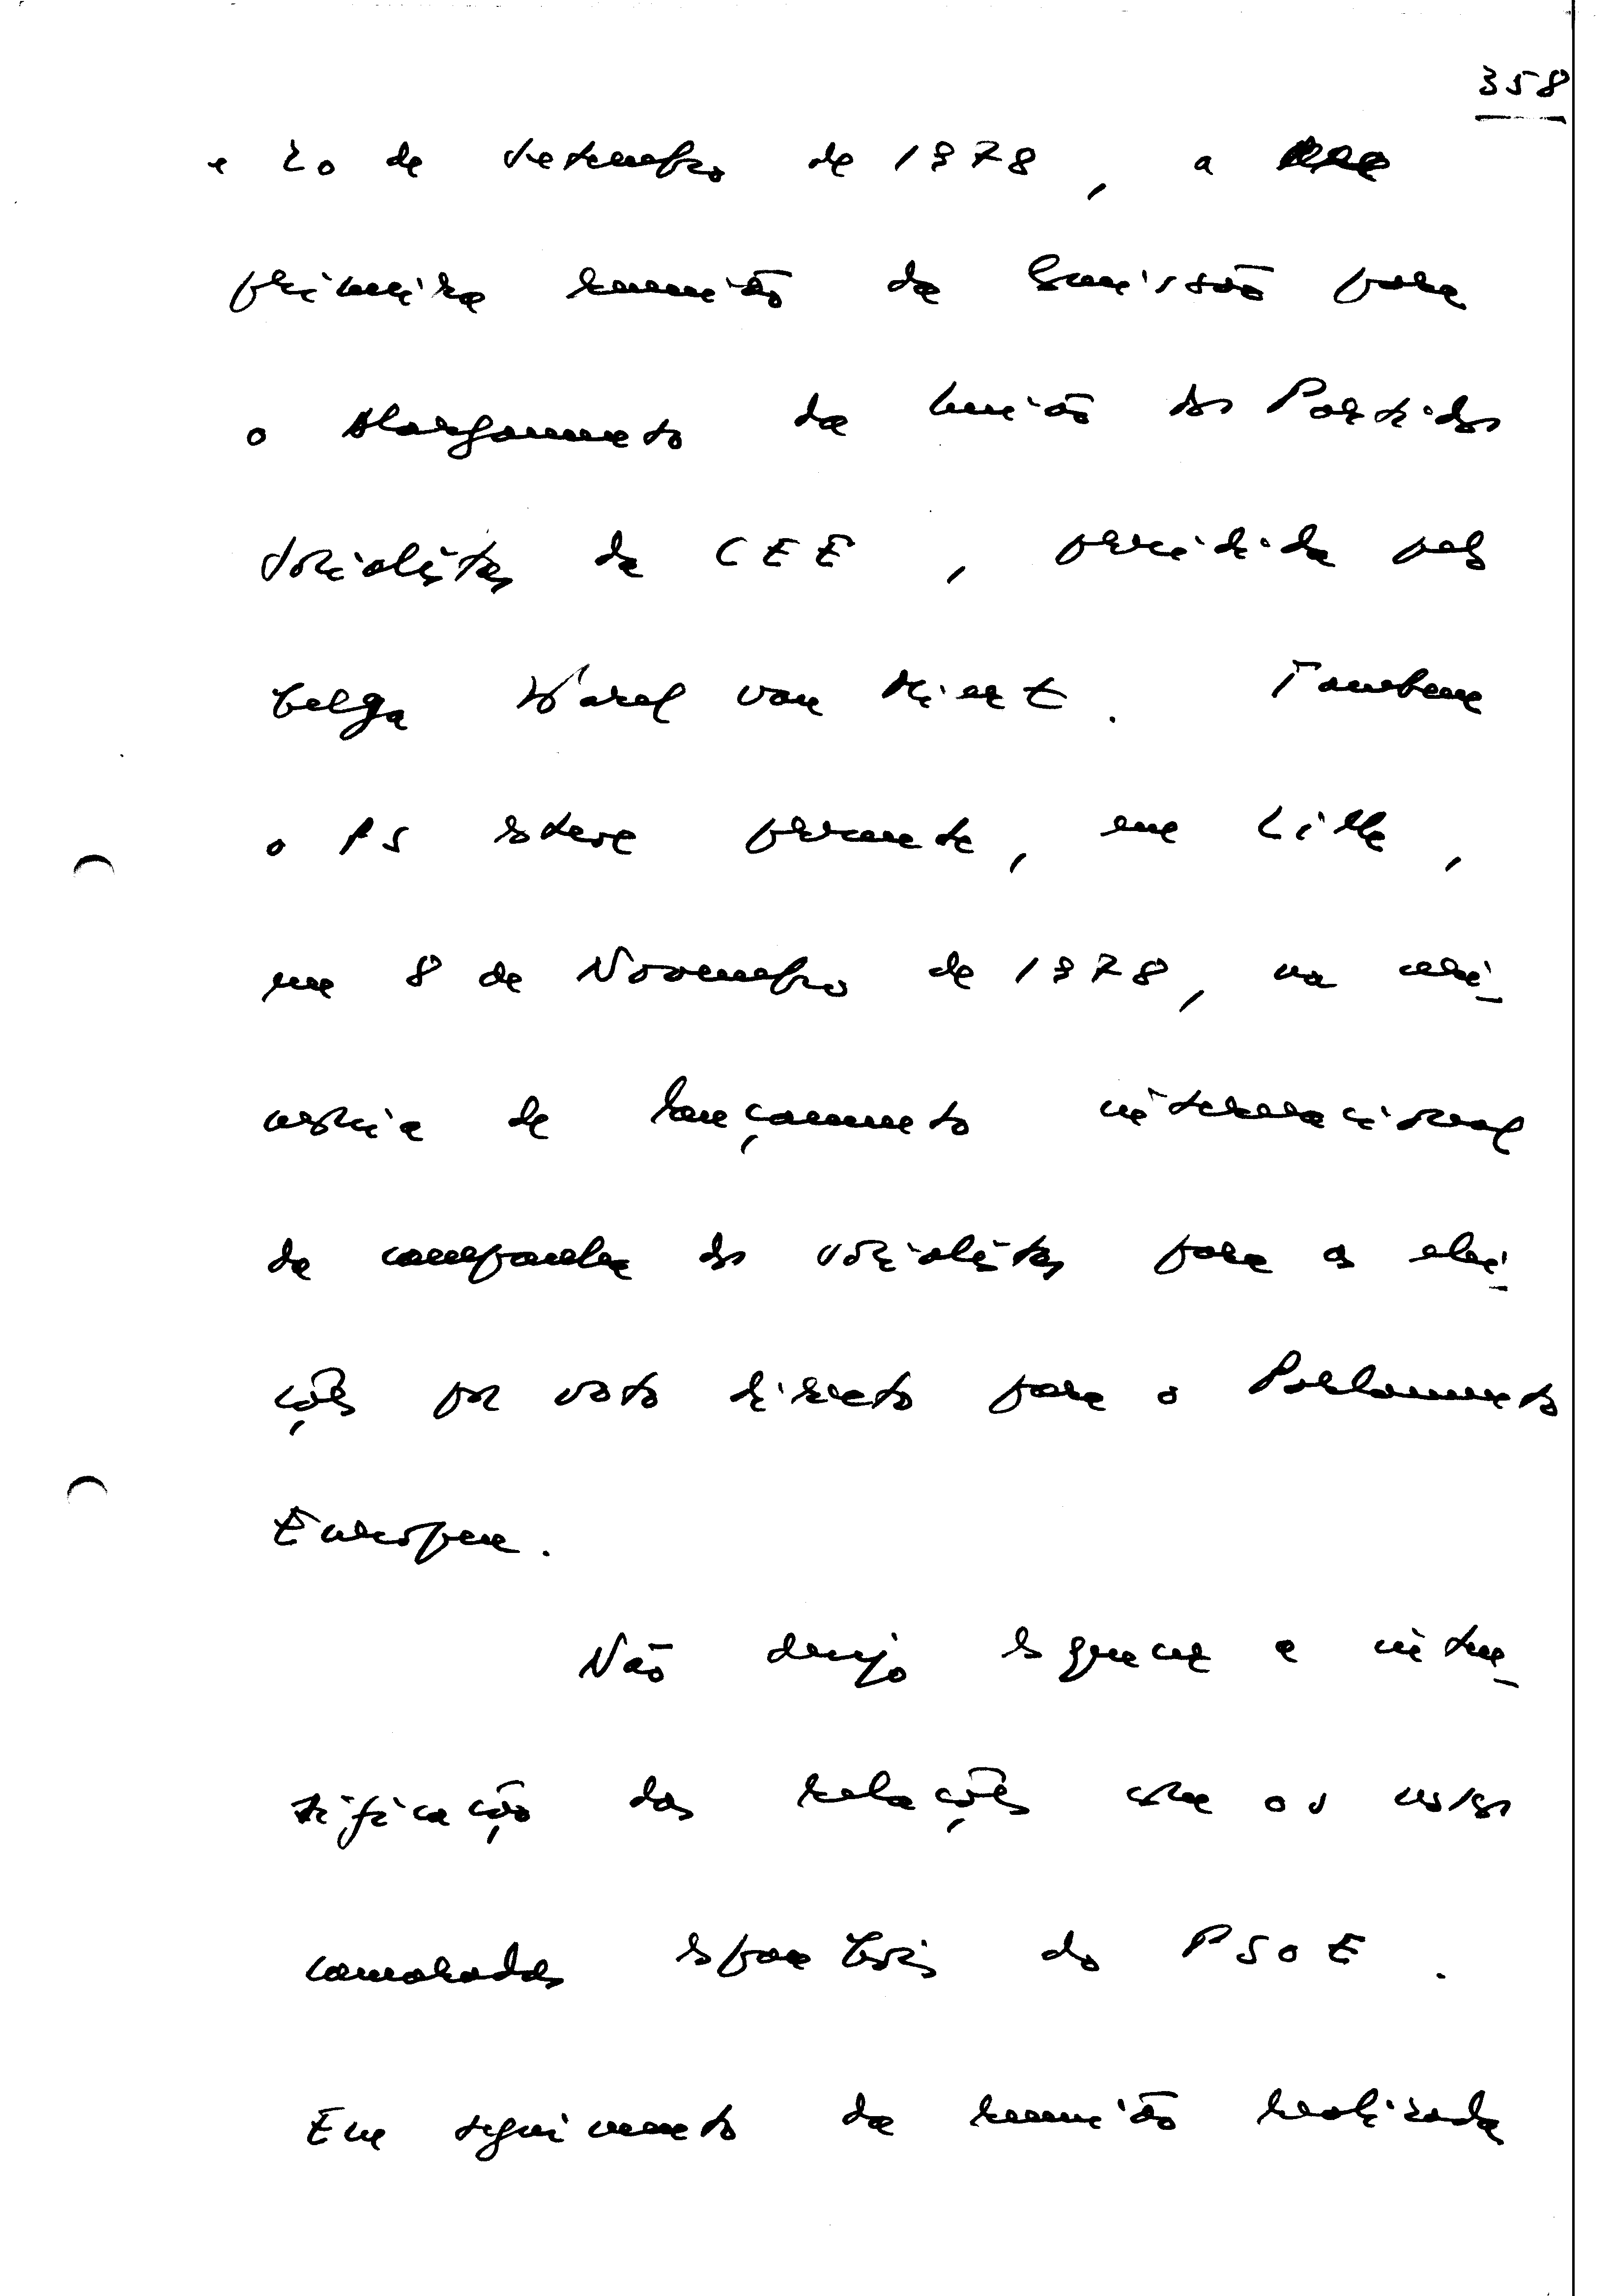 358
e 20 de Setembro de 1978, a
primeira reunião da Comissão para
o Alargamento da União dos Partidos
Socialistas da CEE, presidida pelo
belga Karel van Miert. Também
o PS esteve presente, em Lille,
em 8 de Novembro de 1978, na ceri-
mónia de lançamento internacional
da campanha dos socialistas para as elei-
ções por voto directo para o Parlamento
Europeu.
Não desejo esquecer a inten-
sificação das relações com os nossos
camaradas espanhóis do PSOE.
Em seguimento da reunião realizada